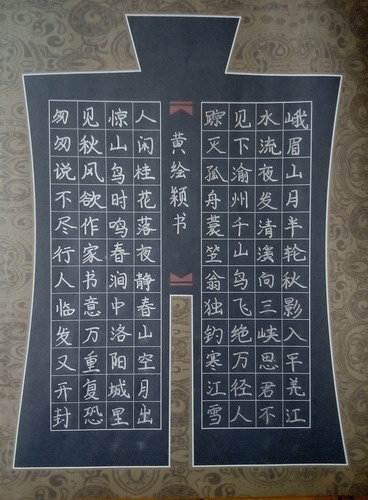 峨眉山月半轮秋影入平羌江
水流夜发清溪向三峡思君不
见下渝州千山鸟飞绝万径人
踪灭孤舟蓑笠翁独钓寒江雪
黄绘颖书
人闲桂花落夜静春山空月出
惊山鸟时鸣春涧中洛阳城里
见秋风欲作家书意万重复恐
匆匆说不尽行人临发又开封